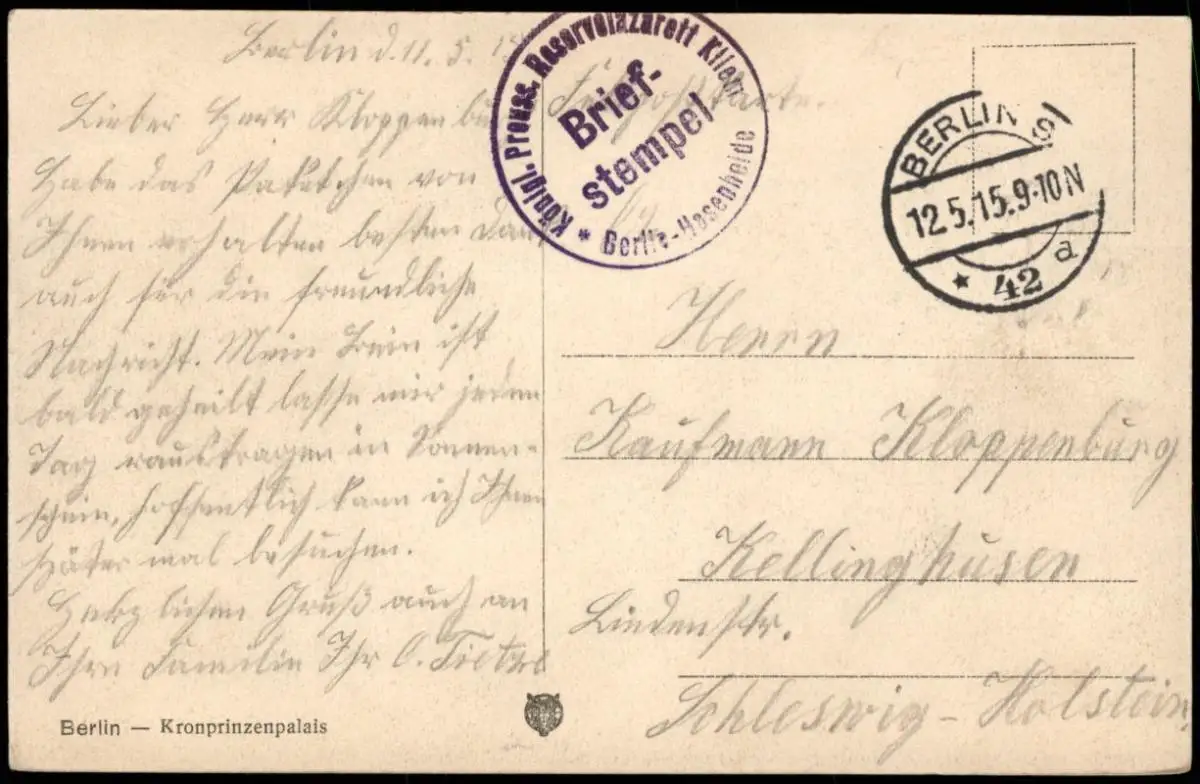 Berlin d. 11. 5. 15
Lieber Herr Kloppenbu
Habe das Paketchen von
Ihnen erhalten besten Dank
auch für die freundliche
Nachricht. Mein Bein ist
bald geheilt lasse mir jeden
Tag raustragen in Sonnen-
schein, hoffentlich kann ich Ihnen
später mal besuchen.
Herzlichen Gruß auch an
Ihre Familie Ihr O. Tietze
Berlin — Kronprinzenpalais
Königl. Preuss. Reservelazarett Kliem
Brief-
stempel
* Berlin-Hasenheide
Feldpostkarte.
BERLIN S
12.5.15.9-10N
* 42 a
Herrn
Kaufmann Kloppenburg
Kellinghusen
Lindenstr.
Schleswig-Holstein.